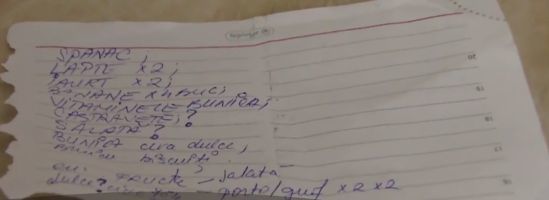 SPANAC;
LAPTE x2;
IAURT x2;
BANANE x4 BUC;
VITAMINELE BUNICA;
CASTRAVETE;?
SALATA?
BUNICA ceva dulce,
biscuiti.
fructe – salata
dulce?
– porto/guf x2 x2